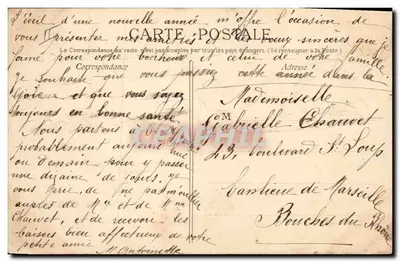 L'éveil d'une nouvelle année m'offre l'occasion de
vous présenter mes vœux sincères que je
CARTE POSTALE
La Correspondance au recto n'est pas acceptée par tous les pays étrangers. (Se renseigner à la Poste)
Correspondance
Adresse
forme pour votre bonheur et celui de votre famille
je souhaite que vous passiez cette année dans la
joie et que vous soyez
toujours en bonne santé.
Nous partons
probablement aujourd'hui
ou demain pour y passer
une dizaine de jours, je
vous prie, de ne pas m'oublier
auprès de Mr et de Mme
Chauvet, et de recevoir les
baisers bien affectueux de votre
petite amie
M. Antoinette
Mademoiselle
Gabrielle Chauvet
43, boulevard St Loup
banlieue de Marseille
Bouches du Rhône